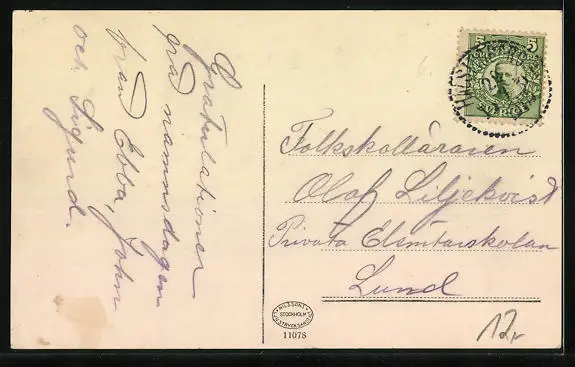 Gratulationer
på namnsdagen
från Ebba, John
och Sigurd.
5 5
SVERIGE
Folkskolläraren
Olof Liljekvist
Privata Elemtarskolan
Lund
NILSSONS
STOCKHOLM
11078
12,-